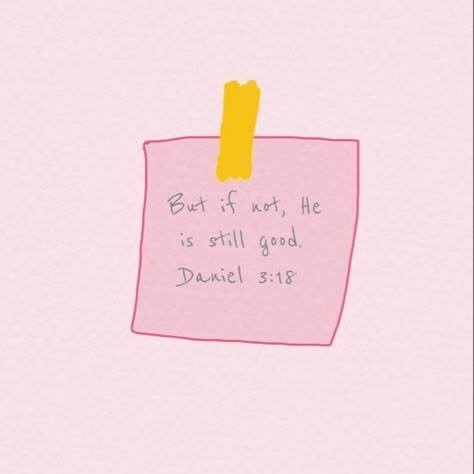 But if not, He
is still good.
Daniel 3:18